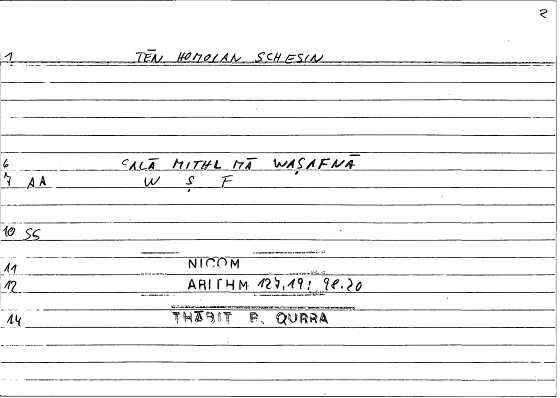 2
1 TĒN HOMOIAN SCHESIN
6 ʿALĀ MITHL MĀ WAṢAFNĀ
7 AA W Ṣ F
10 SS
11 NICOM
12 ARITHM 127.19; 98.20
14 THĀBIT B. QURRA